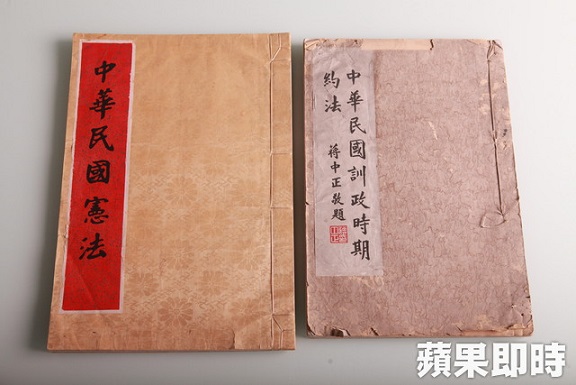 中華民國憲法
中華民國訓政時期
約法
蔣中正敬題
蘋果即時